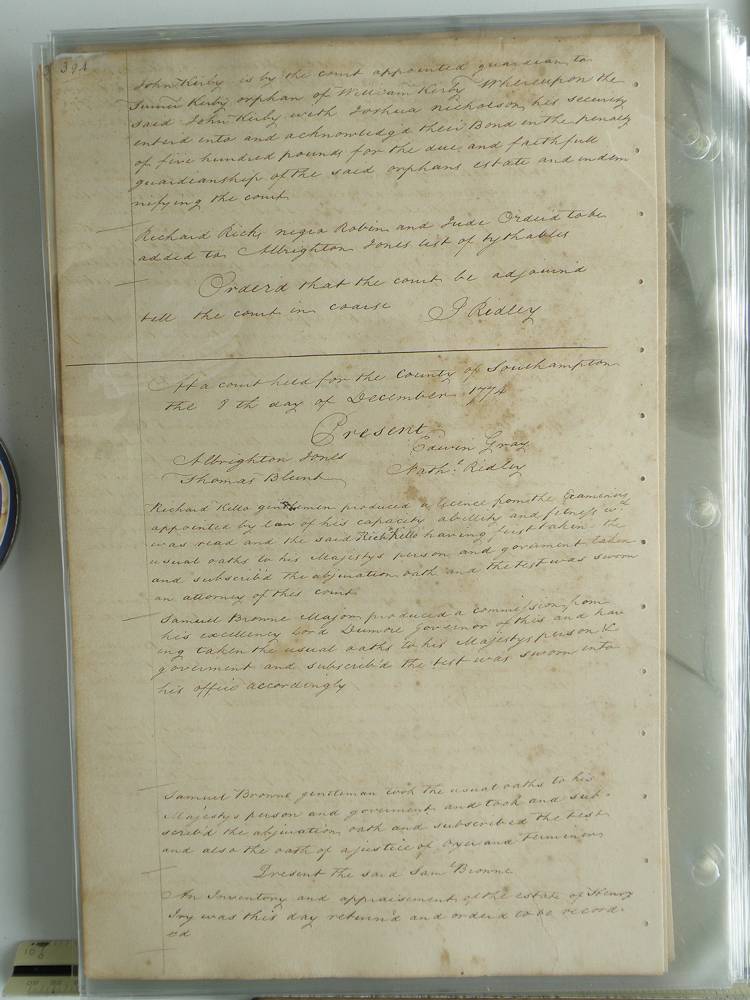 394
John Kirby is by the court appointed guardian to
Turner Kirby orphan of William Kirby Whereupon the
said John Kirby with Joshua Nicholson his security
enterd into and acknowledg'd their Bond in the penalty
of five hundred pounds for the due and faithfull
guardianship of the said orphans estate and indem
nifying the court
Richard Ricks negro Robin and Jude Orderd to be
added to Albrighton Jones list of tythables
Order'd that the court be adjournd
till the court in coarse J Ridley
At a court held for the County of Southampton
the 8th day of December 1774
Present
Albrighton Jones Edwin Gray
Thomas Blunt Nathl Ridley
Richard Kello gentlemen produced a licence from the Examiners
appointed by law of his capacity abillity and fitness wch
was read and the said Richd Kello having first taken the
usual oaths to his Majestys person and goverment taken
and subscrib'd the abjuration oath and the test was sworn
an attorney of this court
Samuel Browne Major produced a commission from
his excellency Lord Dunmore Governor of this and hav
ing taken the usual oaths to his Majestys person &
goverment and subscrib'd the test was sworn into
his office accordingly
Samuel Browne gentleman took the usual oaths to his
Majestys person and goverment and took and sub-
scrib'd the abjuration oath and subscribed the test
and also the oath of a justice of Oyer and Terminer
Present the said Saml Browne
An Inventory and appraisement of the estate of Henry
Ivy was this day returnd and orderd to be record-
ed